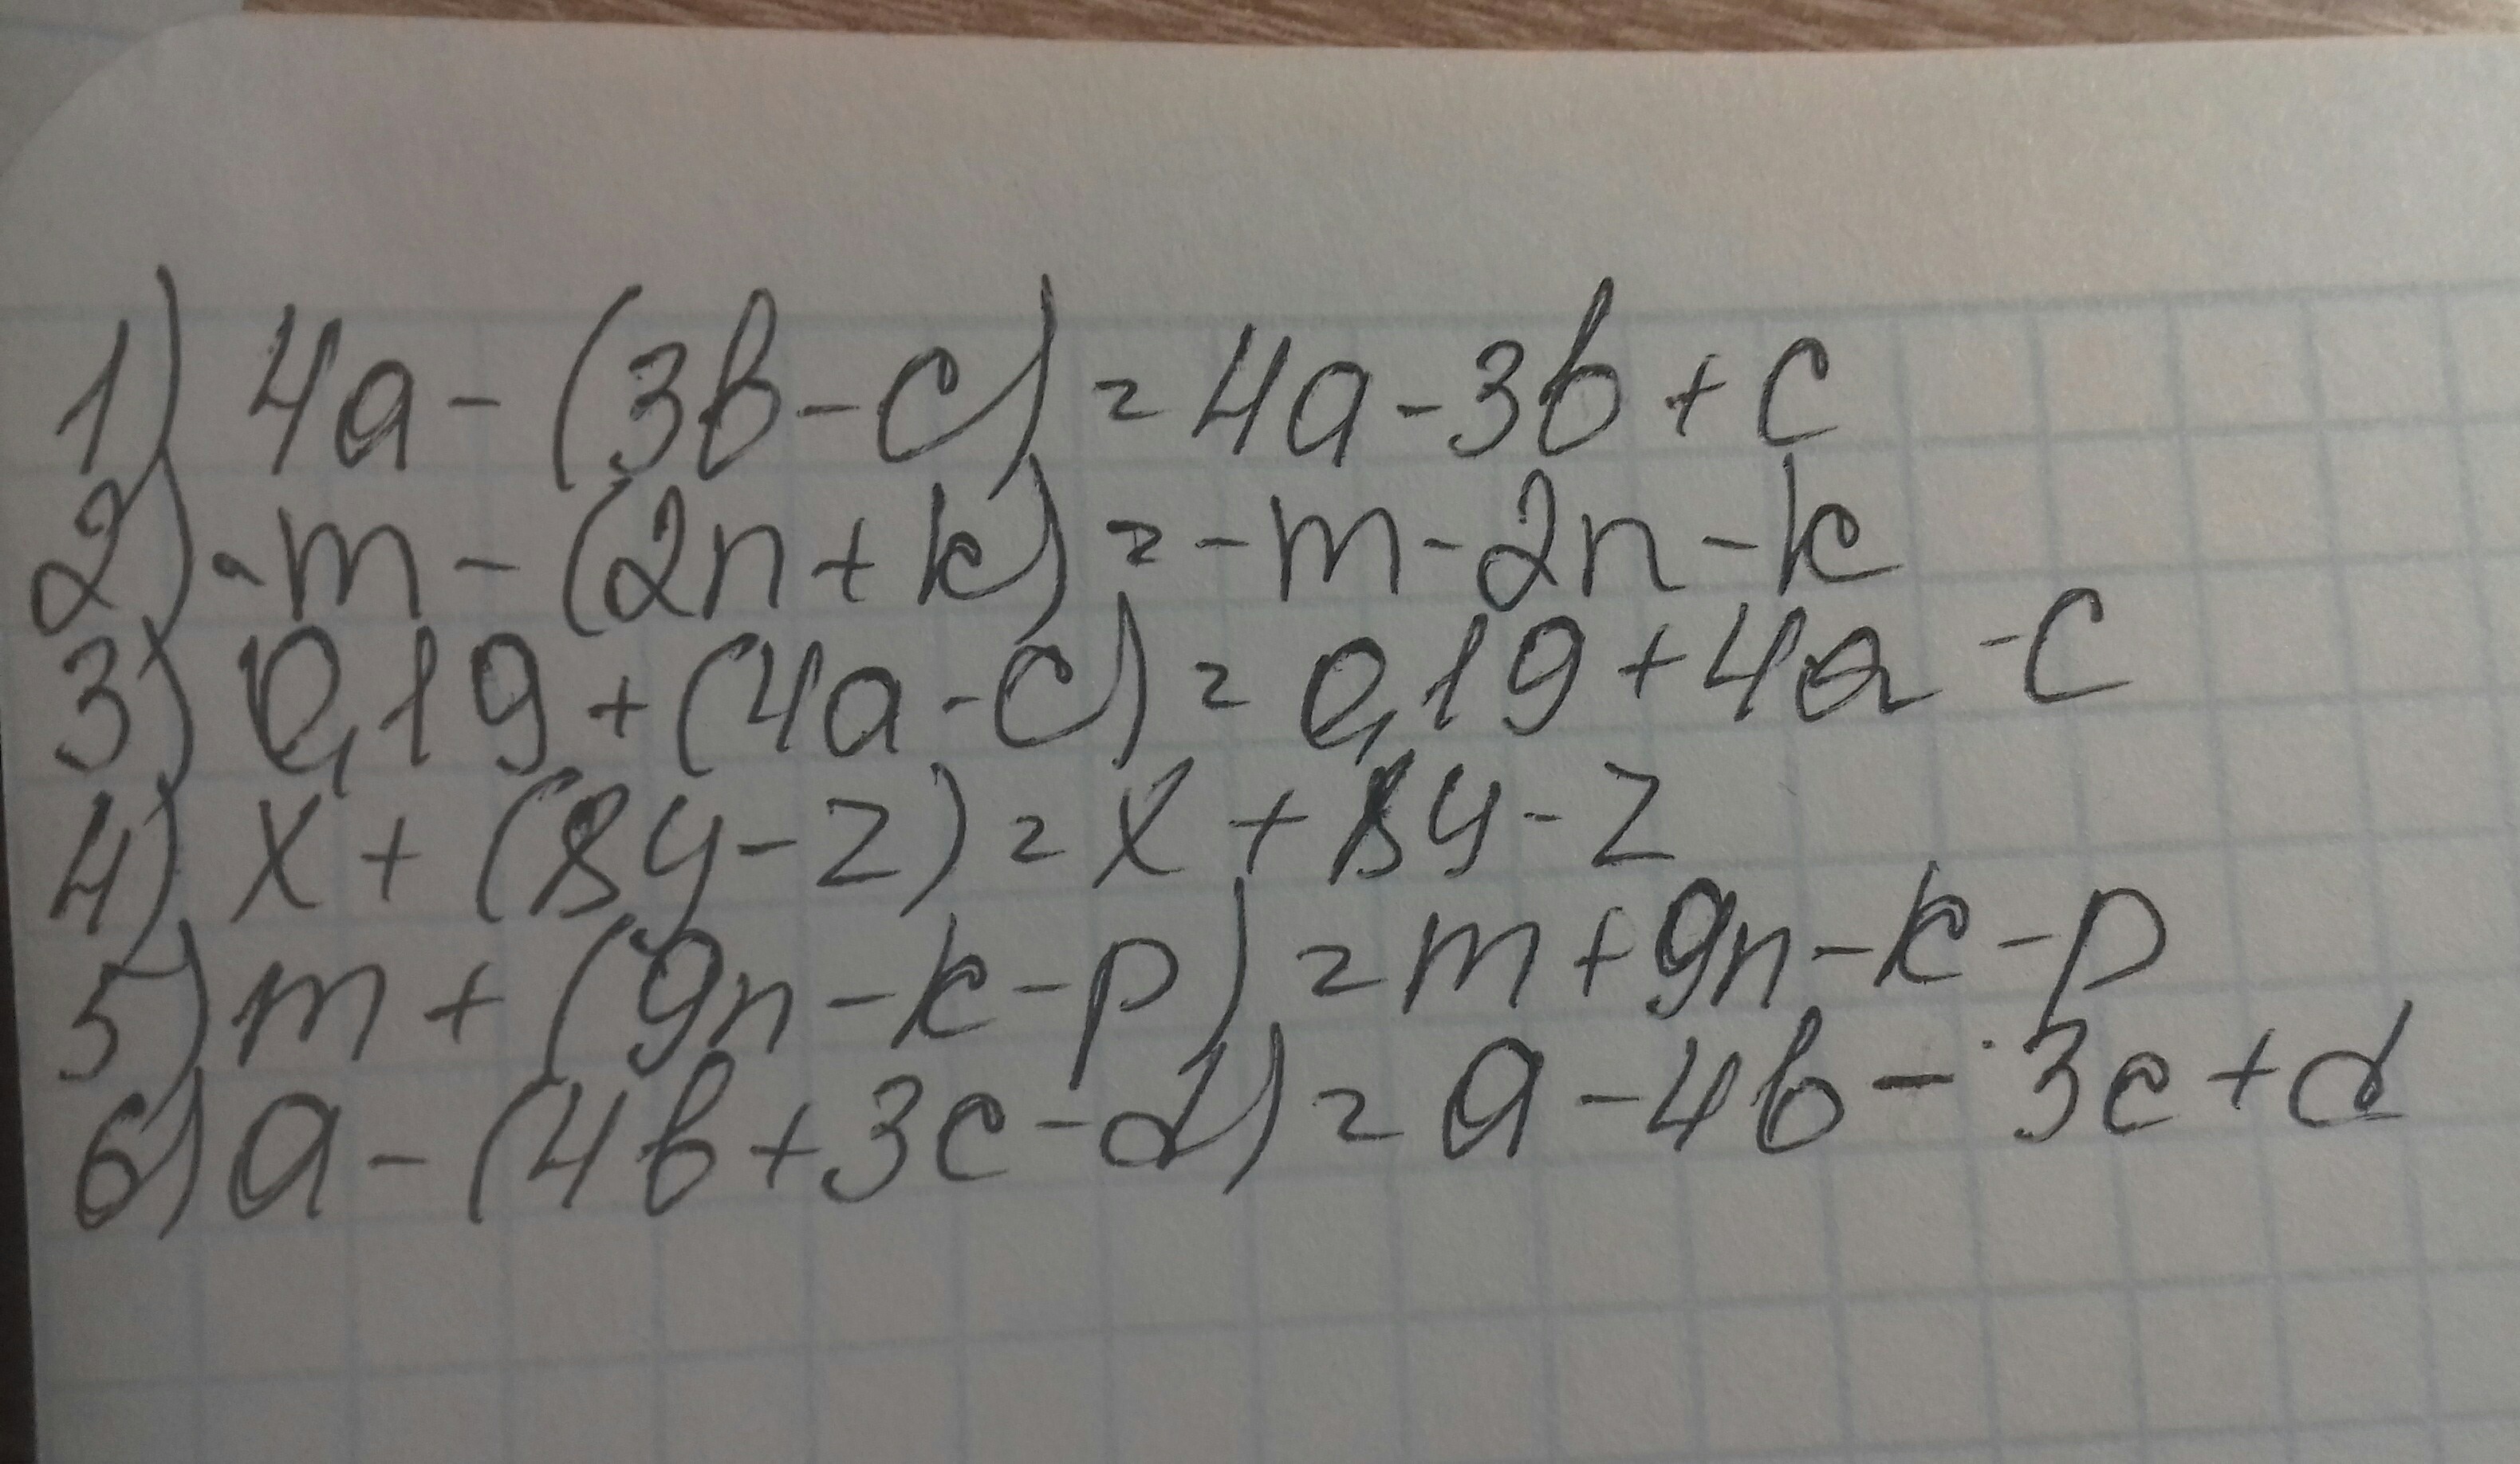 1) 4a - (3b - c) = 4a - 3b + c
2) -m - (2n + k) = -m - 2n - k
3) 0,19 + (4a - c) = 0,19 + 4a - c
4) x + (8y - z) = x + 8y - z
5) m + (9n - k - p) = m + 9n - k - p
6) a - (4b + 3c - d) = a - 4b - 3c + d